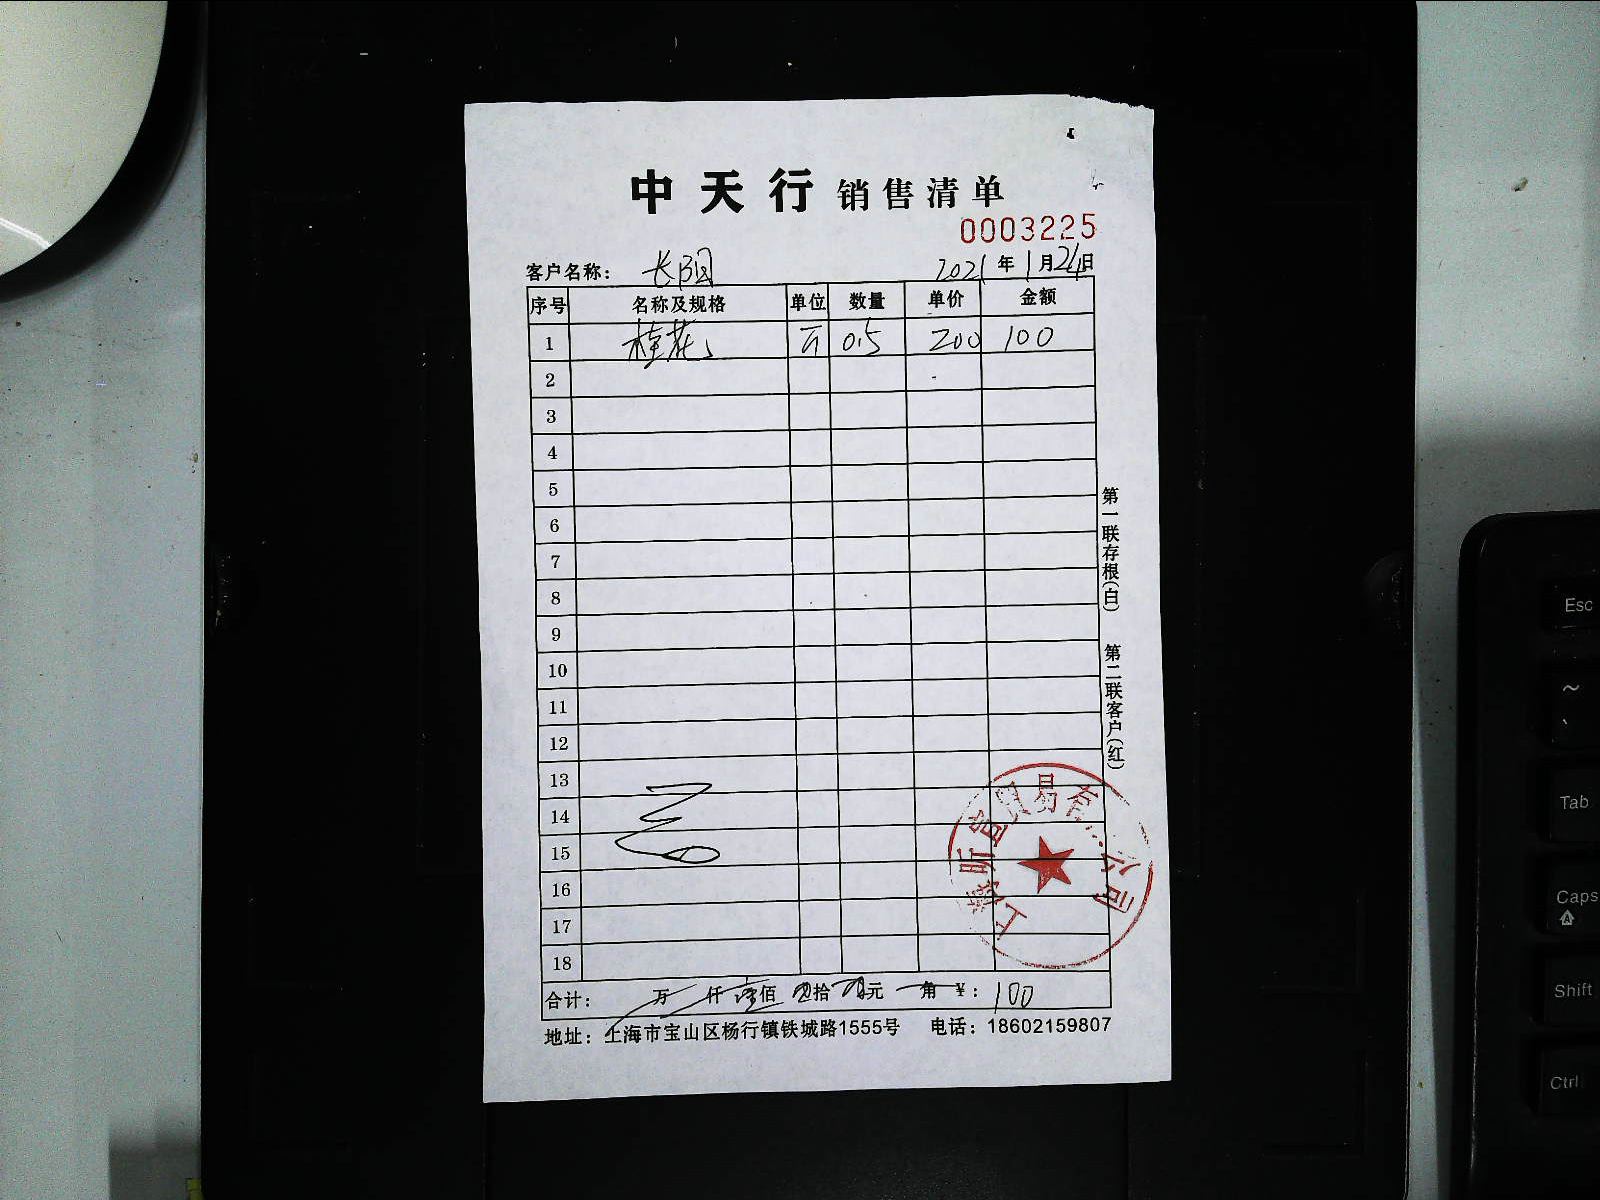 中天行 销售清单
0003225
客户名称： 长阳园 2021年1月24日
序号 名称及规格 单位 数量 单价 金额
1 桂花 斤 0.5 200 100
2
3
4
5
6
7
8
9
10
11
12
13
14
15
16
17
18
合计： 万 仟 壹佰 零拾 零元 角 ￥：100
地址：上海市宝山区杨行镇铁城路1555号 电话：18602159807
第一联存根(白) 第二联客户(红)
贸易有 公司
Esc
~
Tab
Caps
Shift
Ctrl